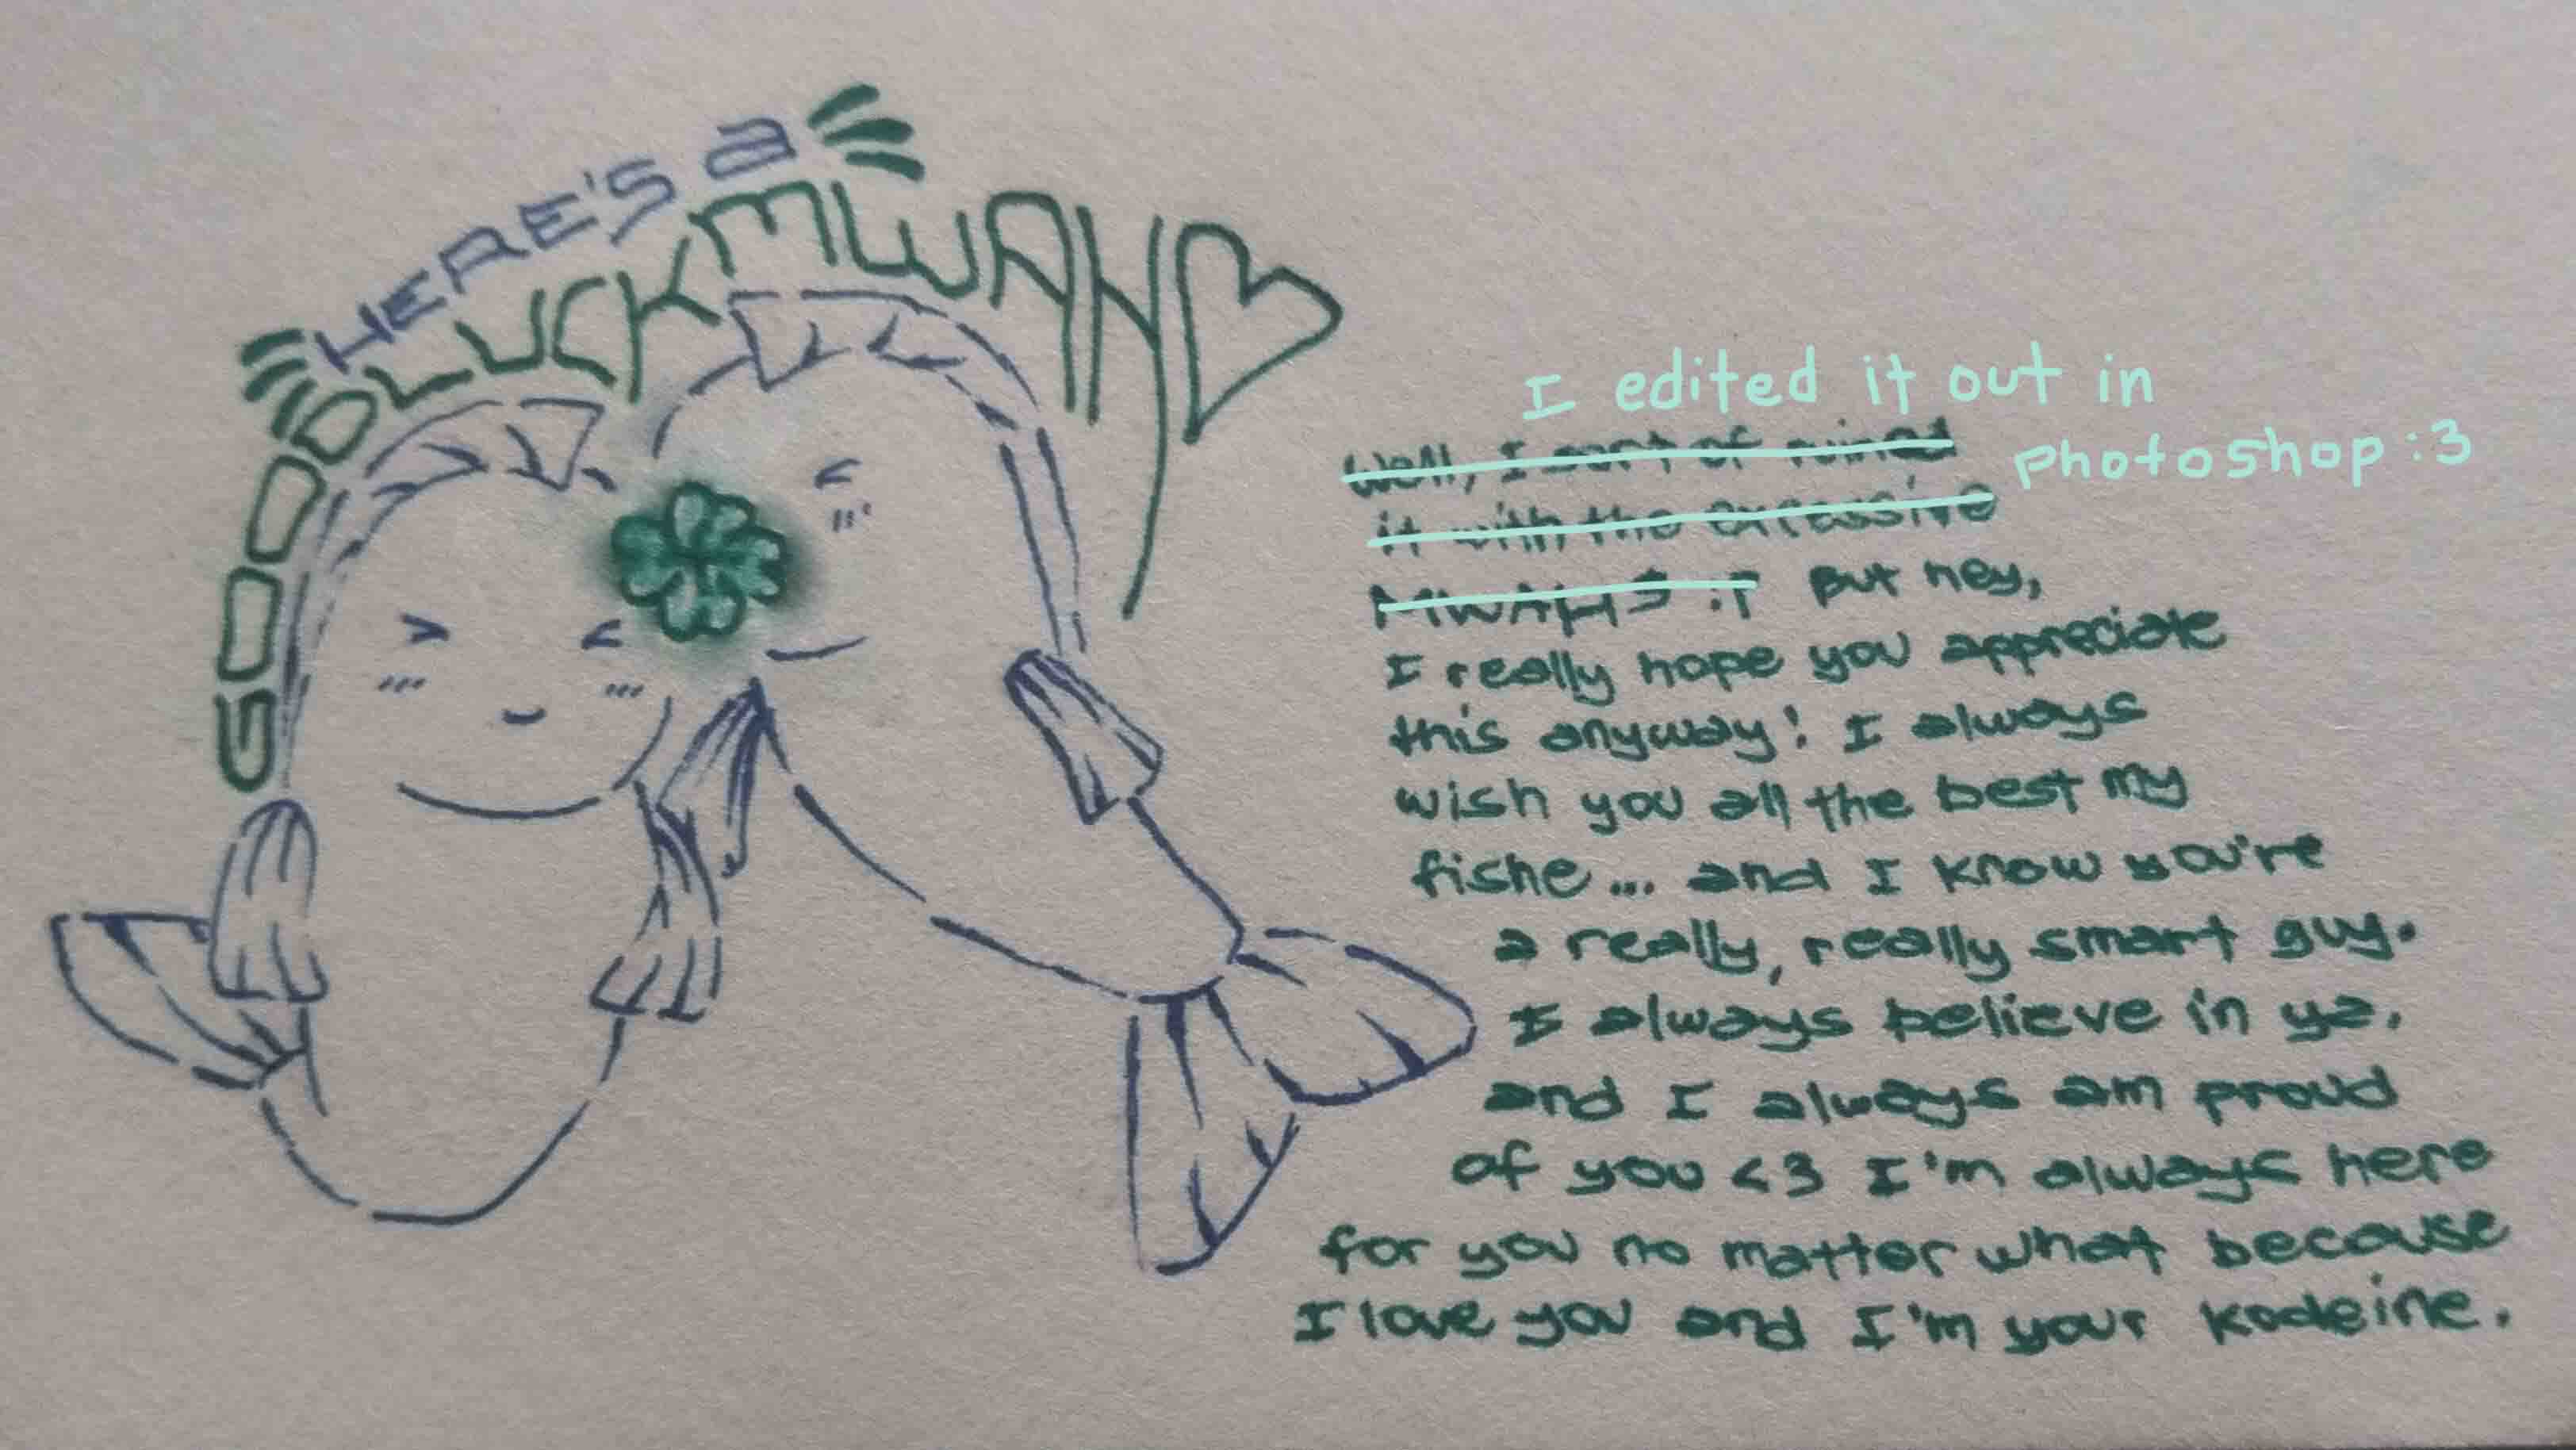 HERE'S a
GOOD LUCK MWAH
I edited it out in
Photoshop :3
Well, I sort of ruined
it with the excessive
MWAHS :P But hey,
I really hope you appreciate
this anyway! I always
wish you all the best my
fishe... and I know you're
a really, really smart guy.
I always believe in ya.
and I always am proud
of you <3 I'm always here
for you no matter what because
I love you and I'm your kodeine.